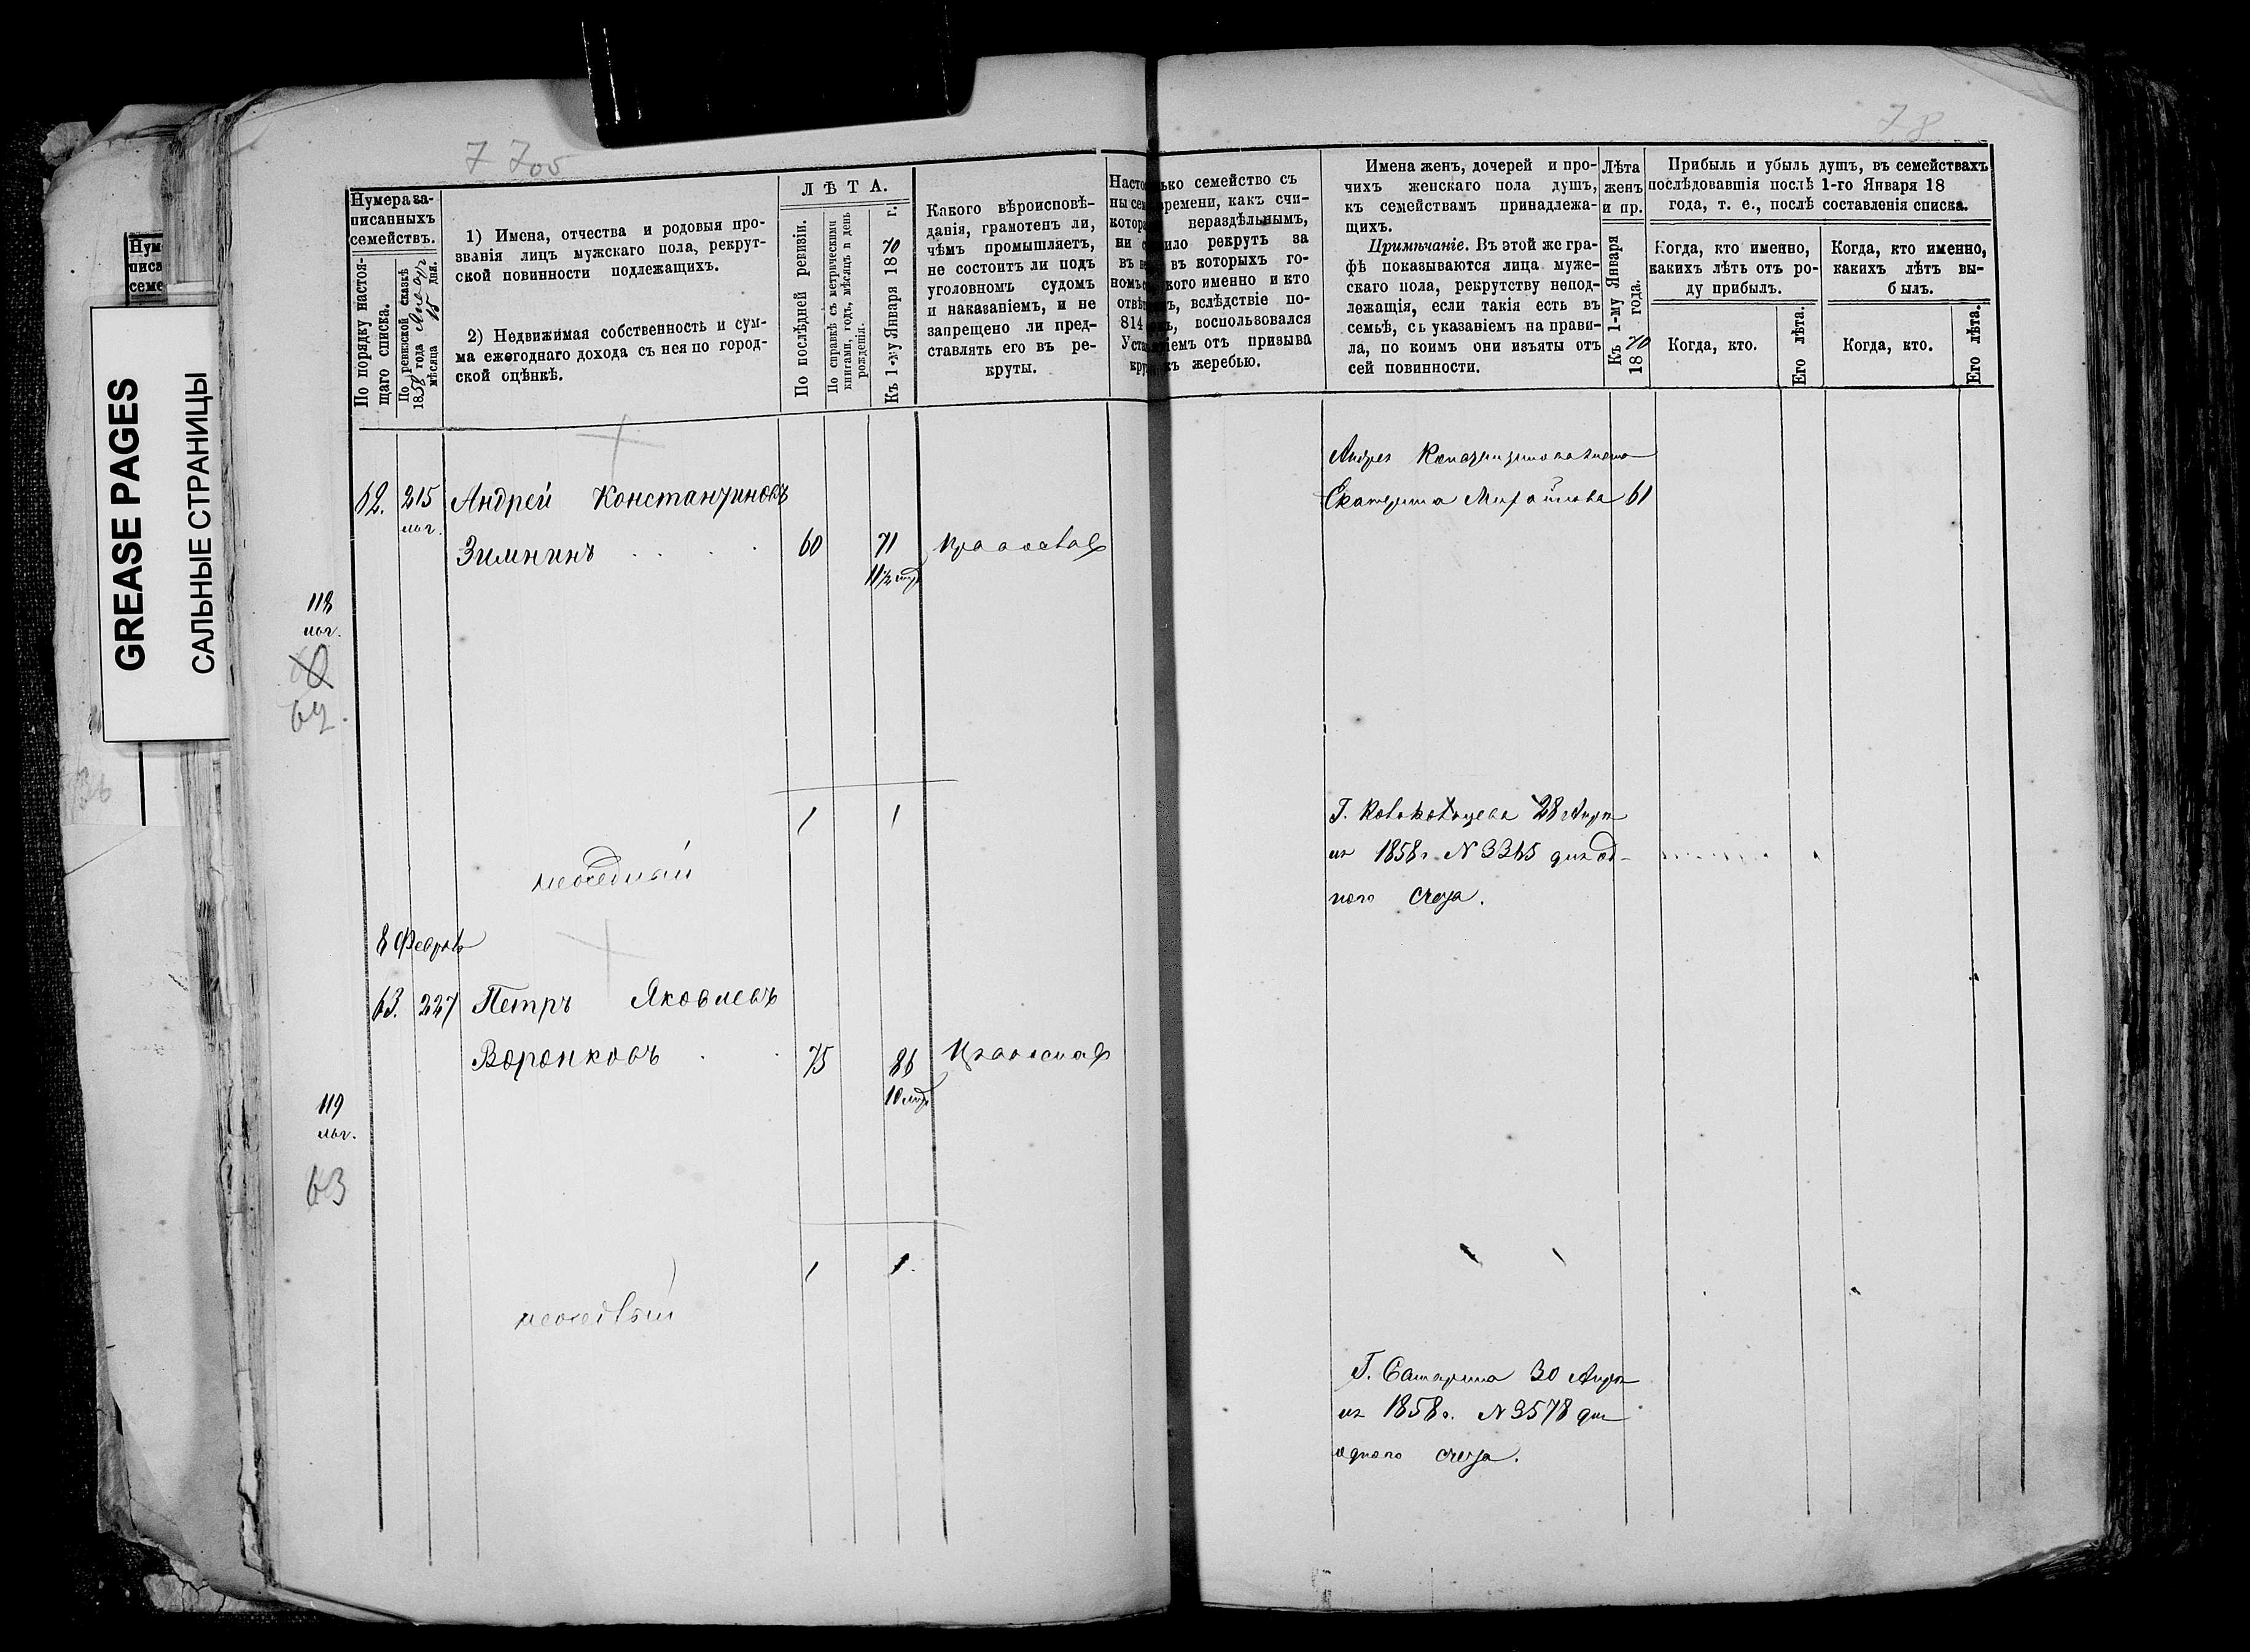 GREASE PAGES
САЛЬНЫЕ СТРАНИЦЫ
7 705
78
Нумера за-
писанныхъ
семействъ.
По порядку настоя-
щаго списка.
По ревизской сказкѣ
1858 года
мѣсяца 15 дня.
1) Имена, отчества и родовыя про-
званія лицъ мужскаго пола, рекрут-
ской повинности подлежащихъ.
2) Недвижимая собственность и сум-
ма ежегоднаго дохода съ нея по город-
ской оцѣнкѣ.
ЛѢТА.
По послѣдней ревизіи.
По справкѣ съ метрическими
книгами, годъ, мѣсяцъ и день
рожденія.
Къ 1-му Января 1870 г.
Какого вѣроисповѣ-
данія, грамотенъ ли,
чѣмъ промышляетъ,
не состоитъ ли подъ
уголовномъ судомъ
и наказаніемъ, и не
запрещено ли пред-
ставлять его въ ре-
круты.
семейство съ
времени, какъ счи-
нераздѣльнымъ,
рекрутъ за
въ которыхъ го-
именно и кто
вслѣдствіе по-
814 воспользовался
отъ призыва
жеребью.
Имена женъ, дочерей и про-
чихъ женскаго пола душъ,
къ семействамъ принадлежа-
щихъ.
Примѣчаніе. Въ этой же гра-
фѣ показываются лица муже-
скаго пола, рекрутству непод-
лежащія, если такія есть въ
семьѣ, съ указаніемъ на прави-
ла, по коимъ они изъяты отъ
сей повинности.
Лѣта
женъ
и пр.
Къ 1-му Января
1870 года.
Прибыль и убыль душъ, въ семействахъ
послѣдовавшія послѣ 1-го Января 18
года, т. е., послѣ составленія списка.
Когда, кто именно,
какихъ лѣтъ отъ ро-
ду прибылъ.
Когда, кто именно,
какихъ лѣтъ вы-
былъ.
Когда, кто.
Его лѣта.
Когда, кто.
Его лѣта.
62. 215 Андрей Константиновъ
Зимнинъ 60 71
Екатерина Михайлова 61
118
62.
1 1
28
1858 г. N 3365
ного счета.
8 Февраля
63. 227 Петръ Яковлевъ
Воронковъ 75 86
119
63
1 1
Г. 30
1858 г. N 3578
одного счета.